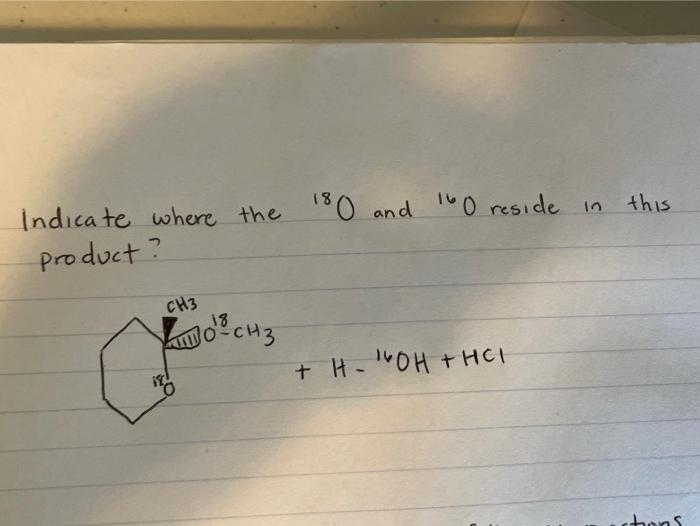 Indicate where the 18O and 16O reside in this
product?
CH3
O18-CH3
18O
+ H-16OH + HCl